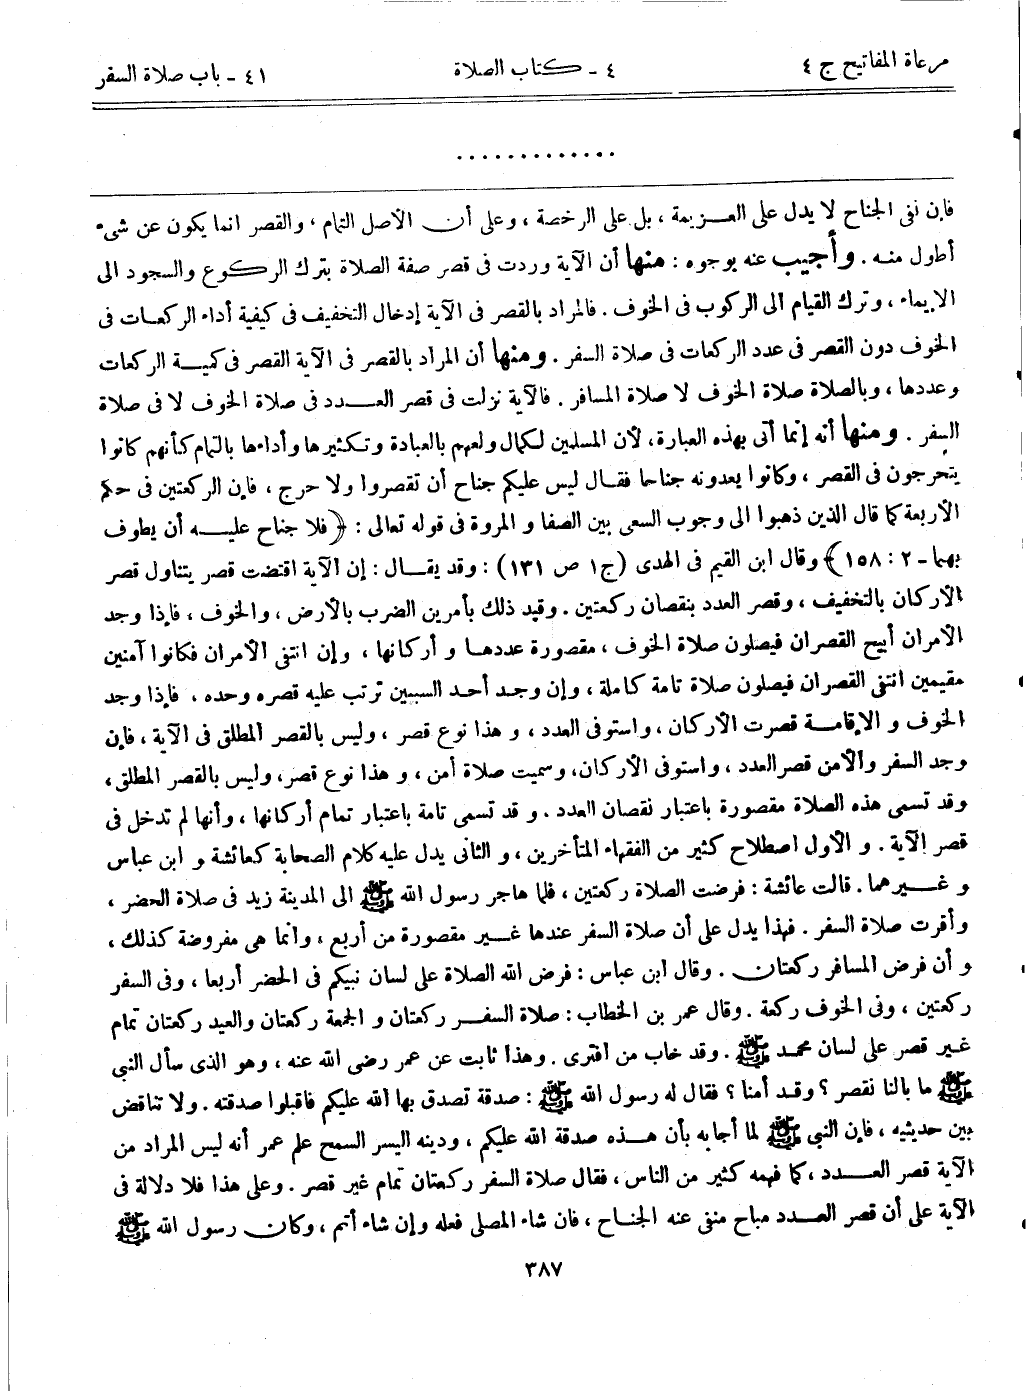 مرعاة المفاتيح ج ٤
٤ - كتاب الصلاة
٤١ - باب صلاة السفر
.............
فإن نفى الجناح لا يدل على العزيمة ، بل على الرخصة ، وعلى أن الأصل التمام ، والقصر انما يكون عن شىء
أطول منه . وأجيب عنه بوجوه : منها أن الآية وردت فى قصر صفة الصلاة بترك الركوع والسجود الى
الايماء ، وترك القيام الى الركوب فى الخوف . فالمراد بالقصر فى الآية إدخال التخفيف فى كيفية أداء الركعات فى
الخوف دون القصر فى عدد الركعات فى صلاة السفر . ومنها أن المراد بالقصر فى الآية القصر فى كمية الركعات
وعددها ، وبالصلاة صلاة الخوف لا صلاة المسافر . فالآية نزلت فى قصر العدد فى صلاة الخوف لا فى صلاة
السفر . ومنها أنه إنما أتى بهذه العبارة، لأن المسلمين لكمال ولعهم بالعبادة وتكثيرها وأداءها بالتمام كأنهم كانوا
يتحرجون فى القصر ، وكانوا يعدونه جناحا فقال ليس عليكم جناح أن تقصروا ولا حرج ، فإن الركعتين فى حكم
الأربعة كما قال الذين ذهبوا الى وجوب السعى بين الصفا و المروة فى قوله تعالى : ﴿فلا جناح عليه أن يطوف
بهما - ٢ : ١٥٨﴾ وقال ابن القيم فى الهدى (ج١ ص ١٣١) : وقد يقال : إن الآية اقتضت قصر يتناول قصر
الأركان بالتخفيف ، وقصر العدد بنقصان ركعتين . وقيد ذلك بأمرين الضرب بالأرض ، والخوف ، فإذا وجد
الأمران أبيح القصران فيصلون صلاة الخوف ، مقصورة عددها و أركانها ، وإن انتفى الأمران فكانوا آمنين
مقيمين انتفى القصران فيصلون صلاة تامة كاملة ، وإن وجد أحد السببين ترتب عليه قصره وحده ، فإذا وجد
الخوف و الإقامة قصرت الأركان ، واستوفى العدد ، و هذا نوع قصر ، وليس بالقصر المطلق فى الآية ، فإن
وجد السفر والأمن قصر العدد ، واستوفى الأركان، وسميت صلاة أمن ، و هذا نوع قصر، وليس بالقصر المطلق،
وقد تسمى هذه الصلاة مقصورة باعتبار نقصان العدد . و قد تسمى تامة باعتبار تمام أركانها ، وأنها لم تدخل فى
قصر الآية . و الأول اصطلاح كثير من الفقهاء المتأخرين ، و الثانى يدل عليه كلام الصحابة كعائشة و ابن عباس
و غيرهما . قالت عائشة : فرضت الصلاة ركعتين ، فلما هاجر رسول الله ﷺ الى المدينة زيد فى صلاة الحضر ،
وأقرت صلاة السفر . فهذا يدل على أن صلاة السفر عندها غير مقصورة من أربع ، وانما هى مفروضة كذلك ،
و أن فرض المسافر ركعتان . وقال ابن عباس : فرض الله الصلاة على لسان نبيكم فى الحضر أربعا ، وفى السفر
ركعتين ، وفى الخوف ركعة . وقال عمر بن الخطاب : صلاة السفر ركعتان و الجمعة ركعتان والعيد ركعتان تمام
غير قصر على لسان محمد ﷺ . وقد خاب من افترى . وهذا ثابت عن عمر رضى الله عنه ، وهو الذى سأل النبى
ﷺ ما بالنا نقصر ؟ وقد أمنا ؟ فقال له رسول الله ﷺ : صدقة تصدق بها الله عليكم فاقبلوا صدقته . ولا تناقض
بين حديثيه ، فإن النبى ﷺ لما أجابه بأن هذه صدقة الله عليكم ، ودينه اليسر السمح علم عمر أنه ليس المراد من
الآية قصر العدد ، كما فهمه كثير من الناس ، فقال صلاة السفر ركعتان تمام غير قصر . وعلى هذا فلا دلالة فى
الآية على أن قصر العدد مباح منفى عنه الجناح ، فان شاء المصلى فعله وإن شاء أتم ، وكان رسول الله ﷺ
٣٨٧